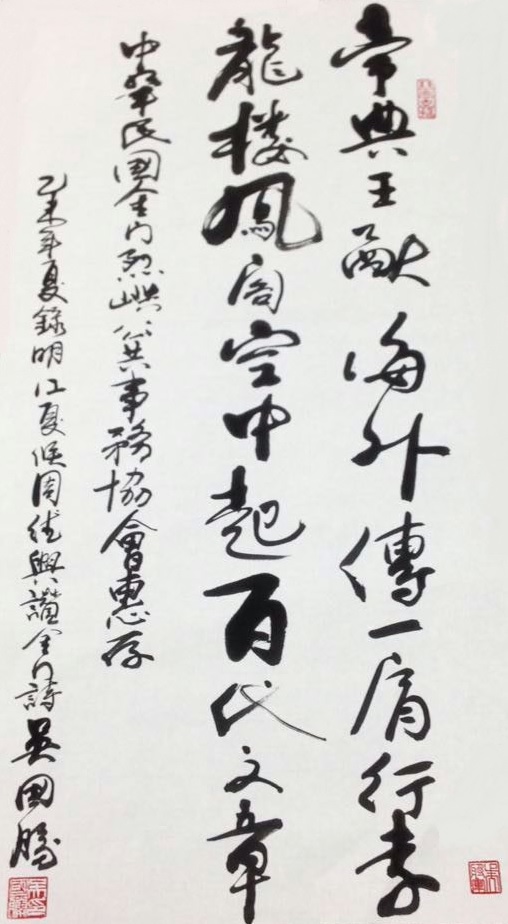 帝典王猷海外傳一肩行李
龍樓鳳閣空中起百代文章
中華民國金門烈嶼公共事務協會惠存
乙未年夏錄明江夏侯周德興讚金門詩吳國